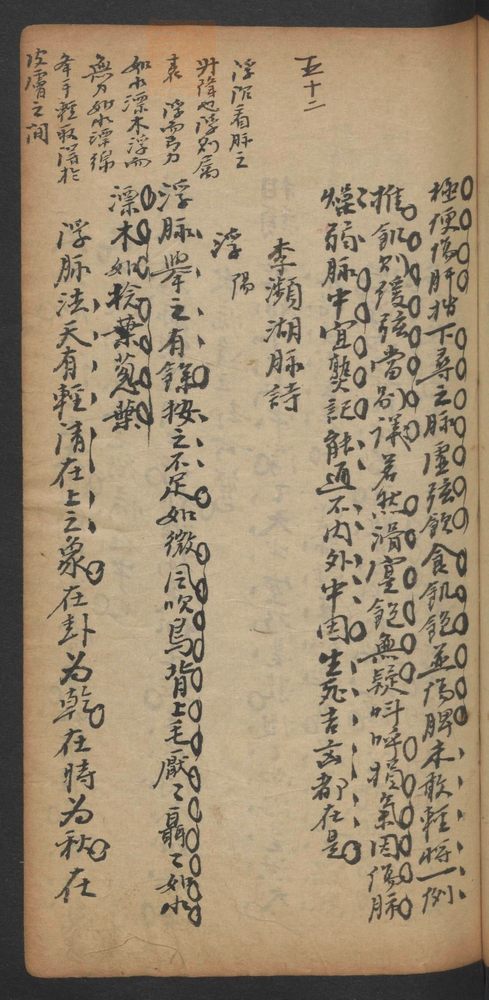 五十二
極便傷肝指下尋之脉虛弦飲食飢飽並傷脾未敢輕將一例
推飢則緩弦當別議若然滑實飽無疑叫呼損氣因傷脉
燥弱脉中宜熟記能通不內外中因生死吉凶都在是
李瀕湖脉詩
浮陽
浮脉舉之有餘按之不足如微風吹鳥背上毛厭々聶々如水
漂木如捻葱葉
浮脉法天有輕清在上之象在卦為乾在時為秋在
浮沉看脉之
升降也浮則属
表浮而有力
如水漂木浮而
無力如水漂綿
舉手輕取得於
皮膚之间